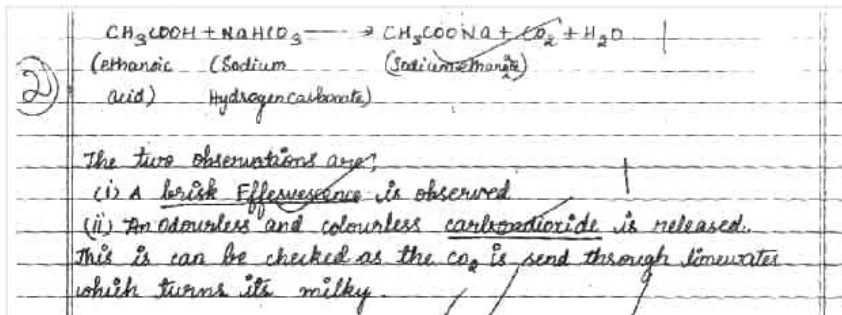 CH₃COOH + NaHCO₃ ⟶ CH₃COONa + CO₂ + H₂O
(ethanoic (Sodium (Sodium ethanoate)
2 acid) Hydrogencarbonate)
The two observations are;
(i) A brisk Effervescence is observed
(ii) An odourless and colourless carbondioxide is released.
This is can be checked as the CO₂ is send through limewater
which turns its milky.